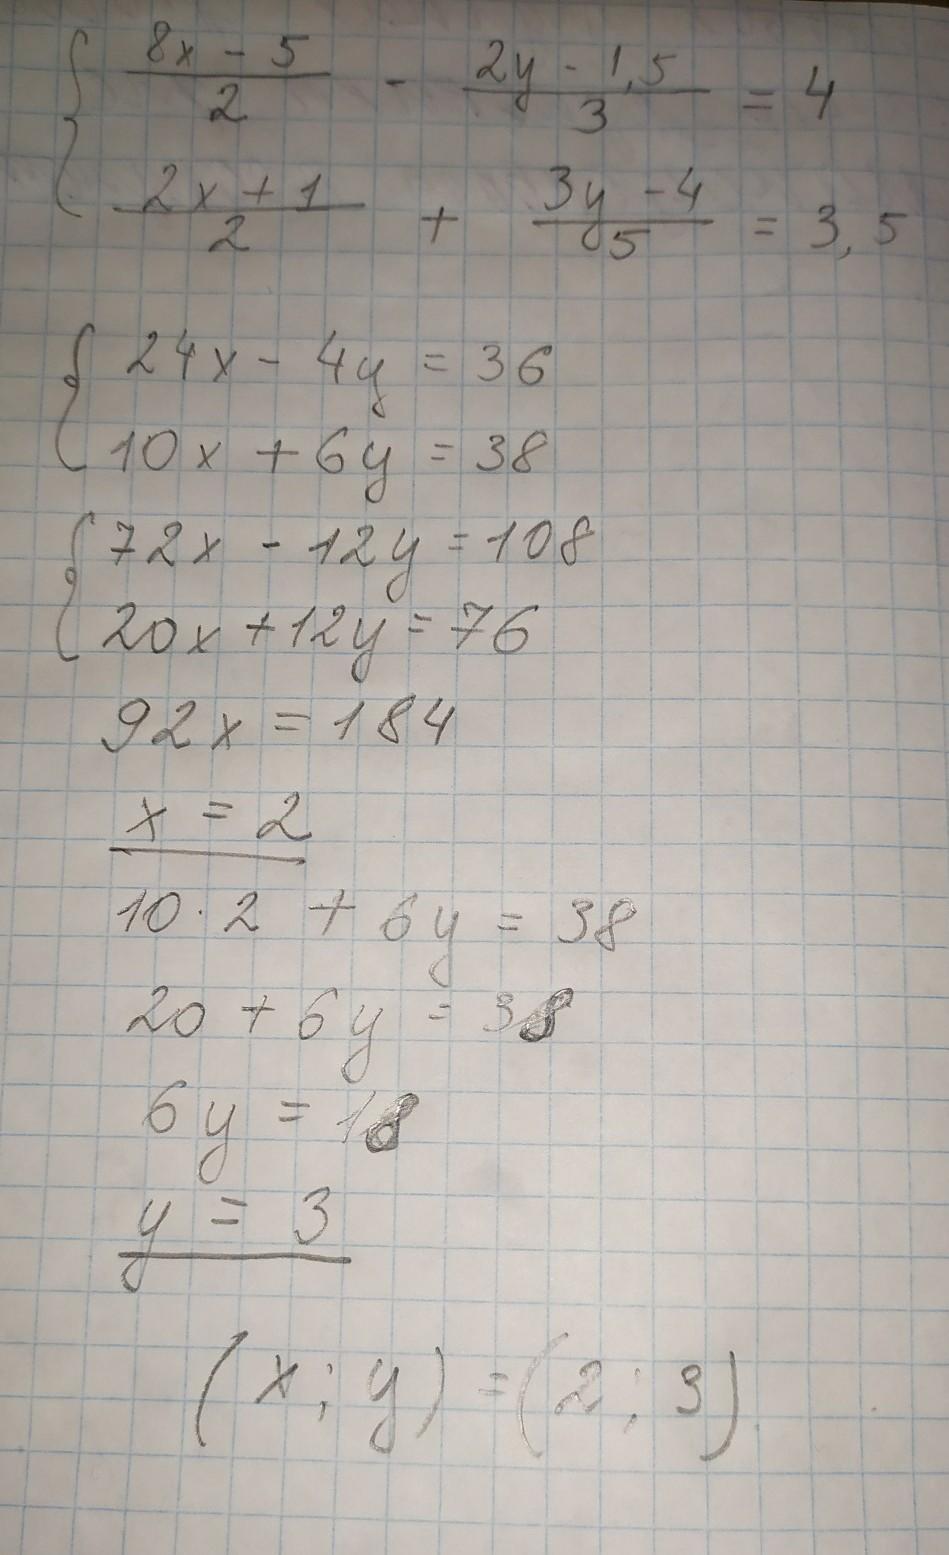 { (8x - 5)/2 - (2y - 1,5)/3 = 4
(2x + 1)/2 + (3y - 4)/5 = 3,5
{ 24x - 4y = 36
10x + 6y = 38
{ 72x - 12y = 108
20x + 12y = 76
92x = 184
x = 2
10 · 2 + 6y = 38
20 + 6y = 38
6y = 18
y = 3
(x; y) = (2; 3)